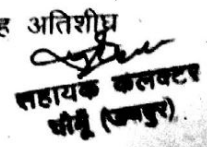 ह अतिशीघ्र
सहायक कलक्टर
चौमूं (जयपुर)